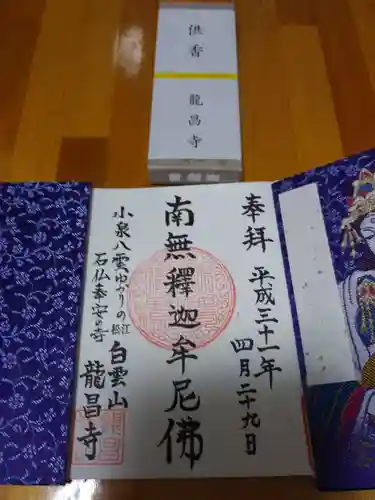 供香
龍昌寺
奉拝
平成三十一年
四月二十九日
南無釋迦牟尼佛
小泉八雲ゆかりの
石仏奉安の寺
松江
白雲山
龍昌寺